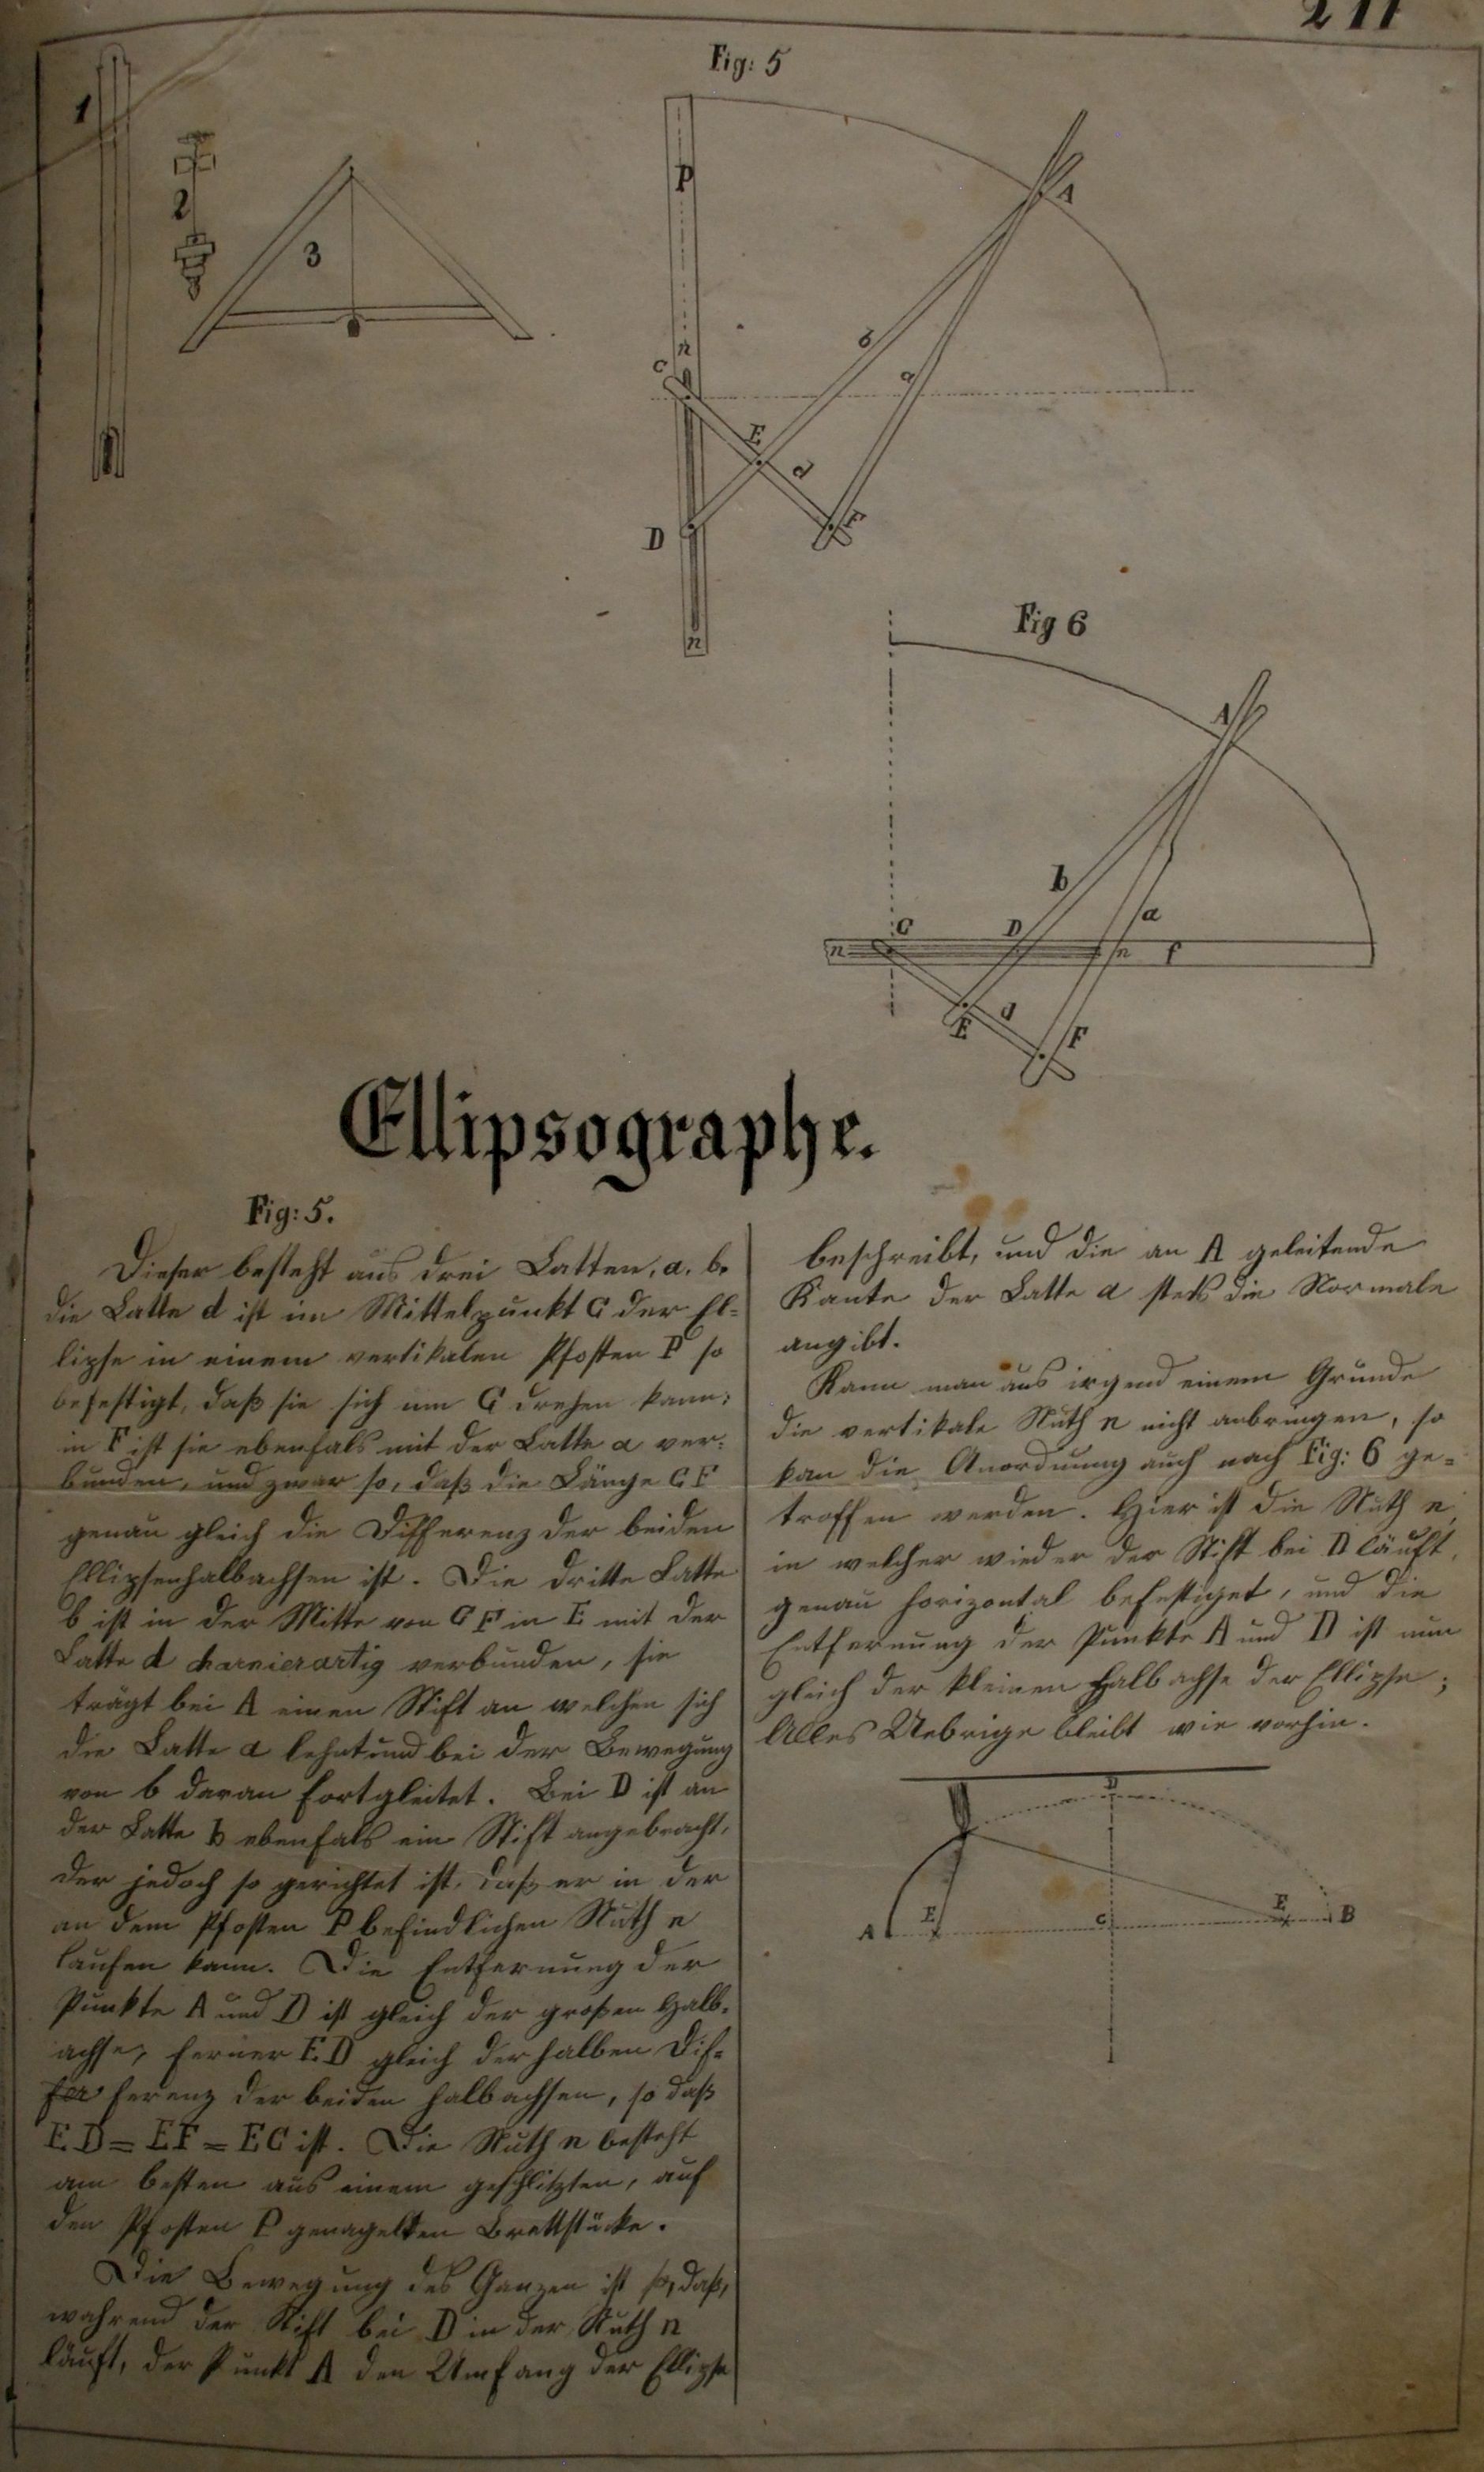 211
Fig: 5
1
2
3
P
A
n
C
b
a
E
d
D
F
n
Fig 6
A
b
a
C
D
n
n
f
E
d
F
Ellipsographe.
Fig: 5.
Dieser besteht aus drei Latten, a. b.
die Latte d ist im Mittelpunkt C der El=
lipse in einem vertikalen Pfosten P so
befestigt, daß sie sich um C drehen kann;
in F ist sie ebenfals mit der Latte a ver=
bunden, und zwar so, daß die Länge C F
genau gleich die Differenz der beiden
Ellipsenhalbachsen ist. Die dritte Latte
b ist in der Mitte von C F in E mit der
Latte d charnierartig verbunden, sie
trägt bei A einen Stift an welchen sich
die Latte a lehnt und bei der Bewegung
von b daran fortgleitet. Bei D ist an
der Latte b ebenfals ein Stift angebracht,
der jedoch so gerichtet ist, daß er in der
an dem Pfosten P befindlichen Nuth n
laufen kann. Die Entfernung der
Punkte A und D ist gleich der großen Halb=
achse, ferner E D gleich der halben Dif=
ferenz der beiden Halbachsen, so daß
E D = E F = E C ist. Die Nuth n besteht
am besten aus einem geschlitzten, auf
den Pfosten P genagelten Brettstücke.
Die Bewegung des Ganzen ist so, daß,
während der Stift bei D in der Nuth n
läuft, der Punkt A den Umfang der Ellipse
beschreibt, und die an A geleitende
Kante der Latte a stets die Normale
angibt.
Kann man aus irgend einem Grunde
die vertikale Nuth n nicht anbringen, so
kan die Anordnung auch nach Fig: 6 ge=
troffen werden. Hier ist die Nuth n,
in welcher wieder der Stift bei D läuft,
genau horizontal befestiget, und die
Entfernung der Punkte A und D ist nun
gleich der kleinen Halbachse der Ellipse;
Alles Uebrige bleibt wie vorhin.
D
A
E
C
E
B